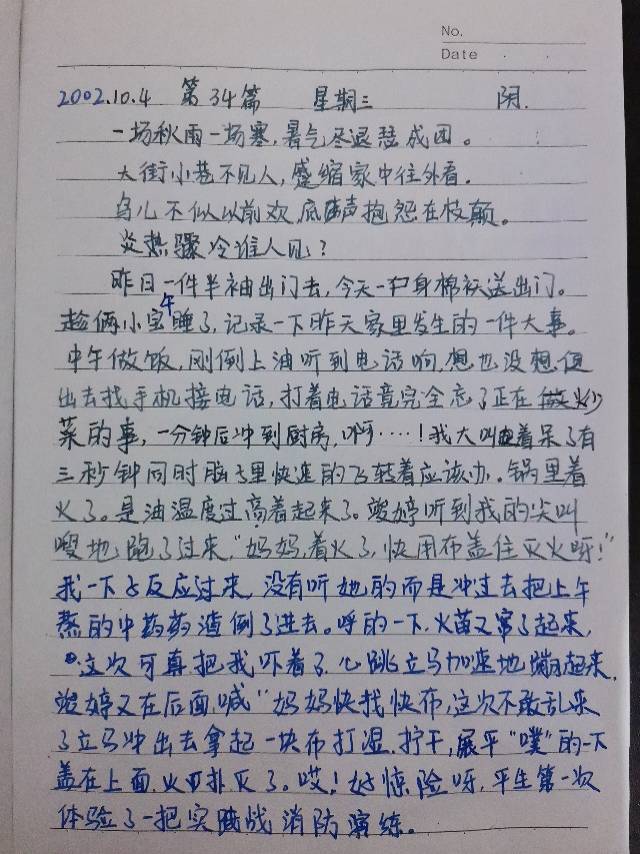 No.
Date
2002.10.4 第34篇 星期三 阴.
一场秋雨一场寒,暑气尽退瑟成团。
大街小巷不见人,蜷缩家中往外看。
鸟儿不似以前欢,底声抱怨在枝颠。
炎热骤冷谁人见?
昨日一件半袖出门去,今天一身棉袄送出门。
趁俩小宝午睡了,记录一下昨天家里发生的一件大事。
中午做饭,刚倒上油听到电话响,想也没想便
出去找手机接电话,打着电话竟完全忘了正在做炒
菜的事,一分钟后冲到厨房,啊……!我大叫着呆了有
三秒钟同时脑子里快速的飞转着应该办.锅里着
火了。是油温度过高着起来了。竣婷听到我的尖叫
嗖地跑了过来,“妈妈,着火了,快用布盖住灭火呀!”
我一下子反应过来,没有听她的而是冲过去把上午
熬的中药药渣倒了进去。呼的一下,火苗又窜了起来,
这次可真把我吓着了,心跳立马加速地蹦起来,
竣婷又在后面喊“妈妈快找快布,这次不敢乱来
了立马冲出去拿起一块布打湿,拧干,展平“噗”的一下
盖在上面,火可扑灭了。哎!好惊险呀,平生第一次
体验了一把实战消防演练。